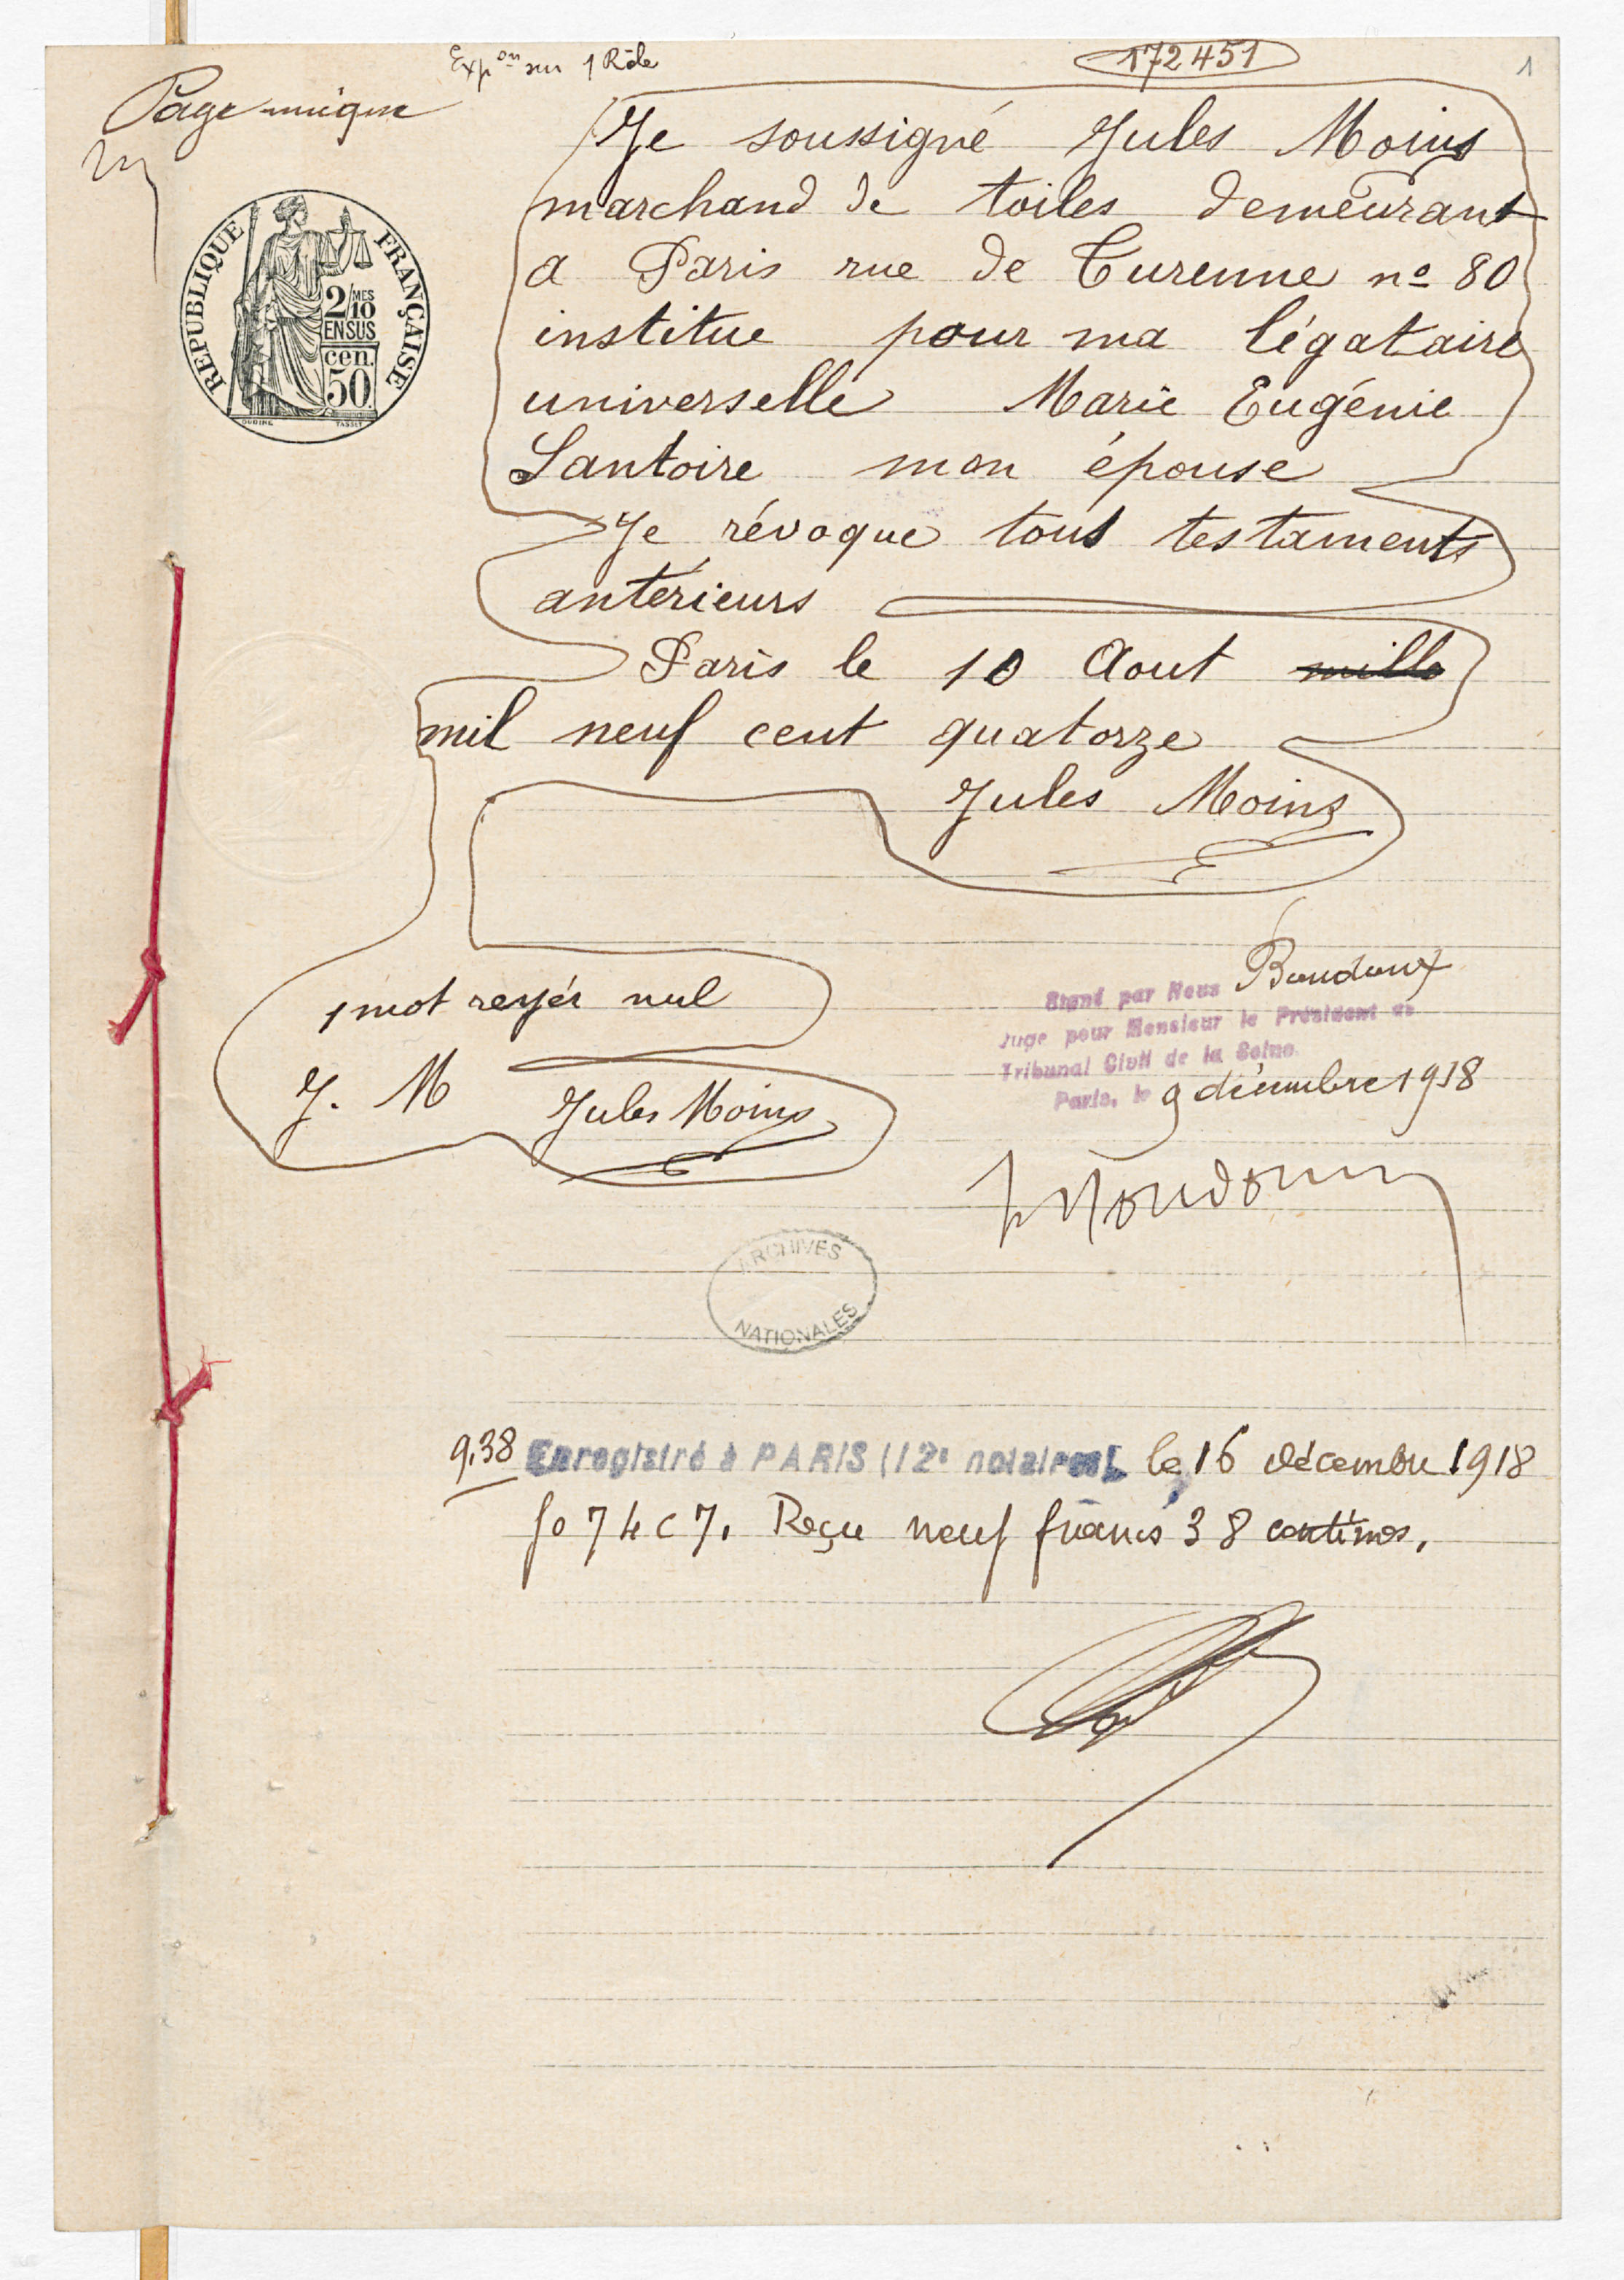 Expon sur 1 Rôle
172 451
1
Page unique
RÉPUBLIQUE FRANÇAISE
2/10 MES
EN SUS
cen.
50
OUDINÉ TASSET
Je soussigné Jules Moins
marchand de toiles demeurant
a Paris rue de Turenne no 80
institue pour ma légataire
universelle Marie Eugénie
Lantoire mon épouse
Je révoque tous testaments
antérieurs
Paris le 10 Aout mille
mil neuf cent quatorze
Jules Moins
1 mot reyér nul
J. M Jules Moins
Signé par Nous Boudoux
Juge pour Monsieur le Président du
Tribunal Civil de la Seine
Paris, le 9 décembre 1918
ARCHIVES
NATIONALES
9,38 Enregistré à PARIS (12e notaires) le 16 décembre 1918
fo 74 c 7. Reçu neuf francs 38 centimes.